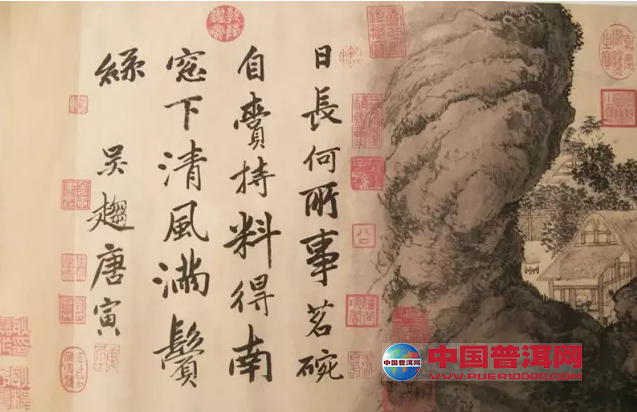 日長何所事茗碗
自賫持料得南
窓下清風滿鬢
絲 吳趨唐寅
中国普洱网
WWW.PUER10000.COM